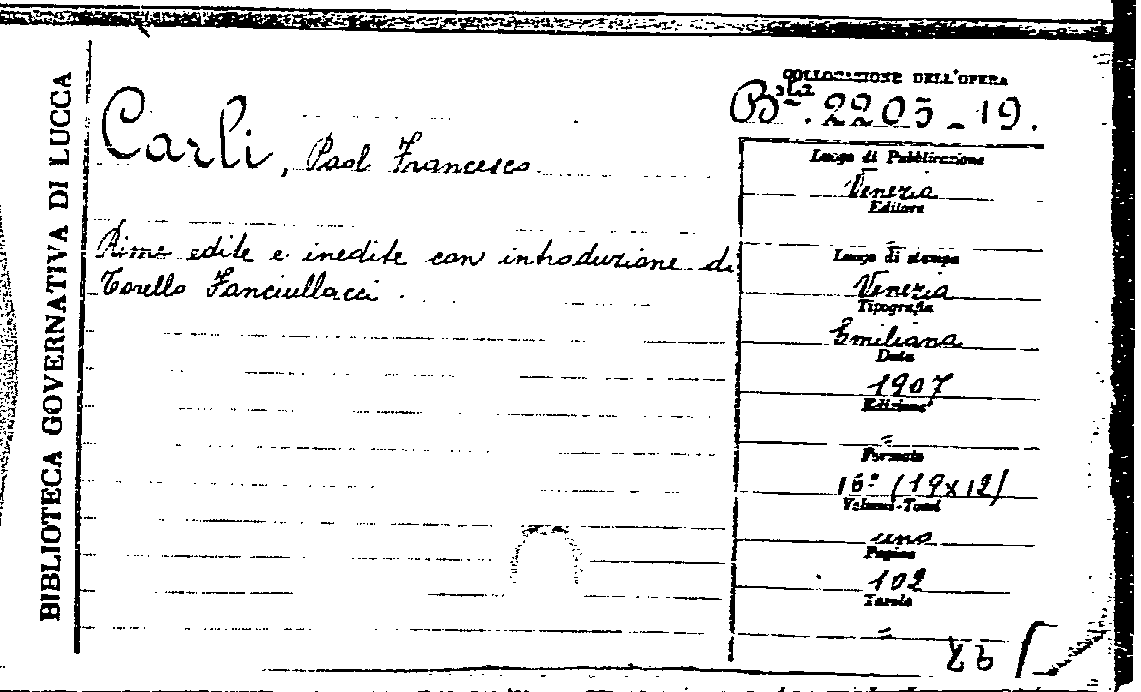 BIBLIOTECA GOVERNATIVA DI LUCCA
Carli, Paol Francesco
Rime edite e inedite con introduzione di
Torello Fanciullacci.
COLLOCAZIONE DELL'OPERA
2205-19.
Luogo di Pubblicazione
Venezia
Editore
=
Luogo di stampa
Venezia
Tipografia
Emiliana
Data
1907
Edizione
=
Formato
16° (19x12)
Volumi-Tomi
uno
Pagine
102
Tavole
=